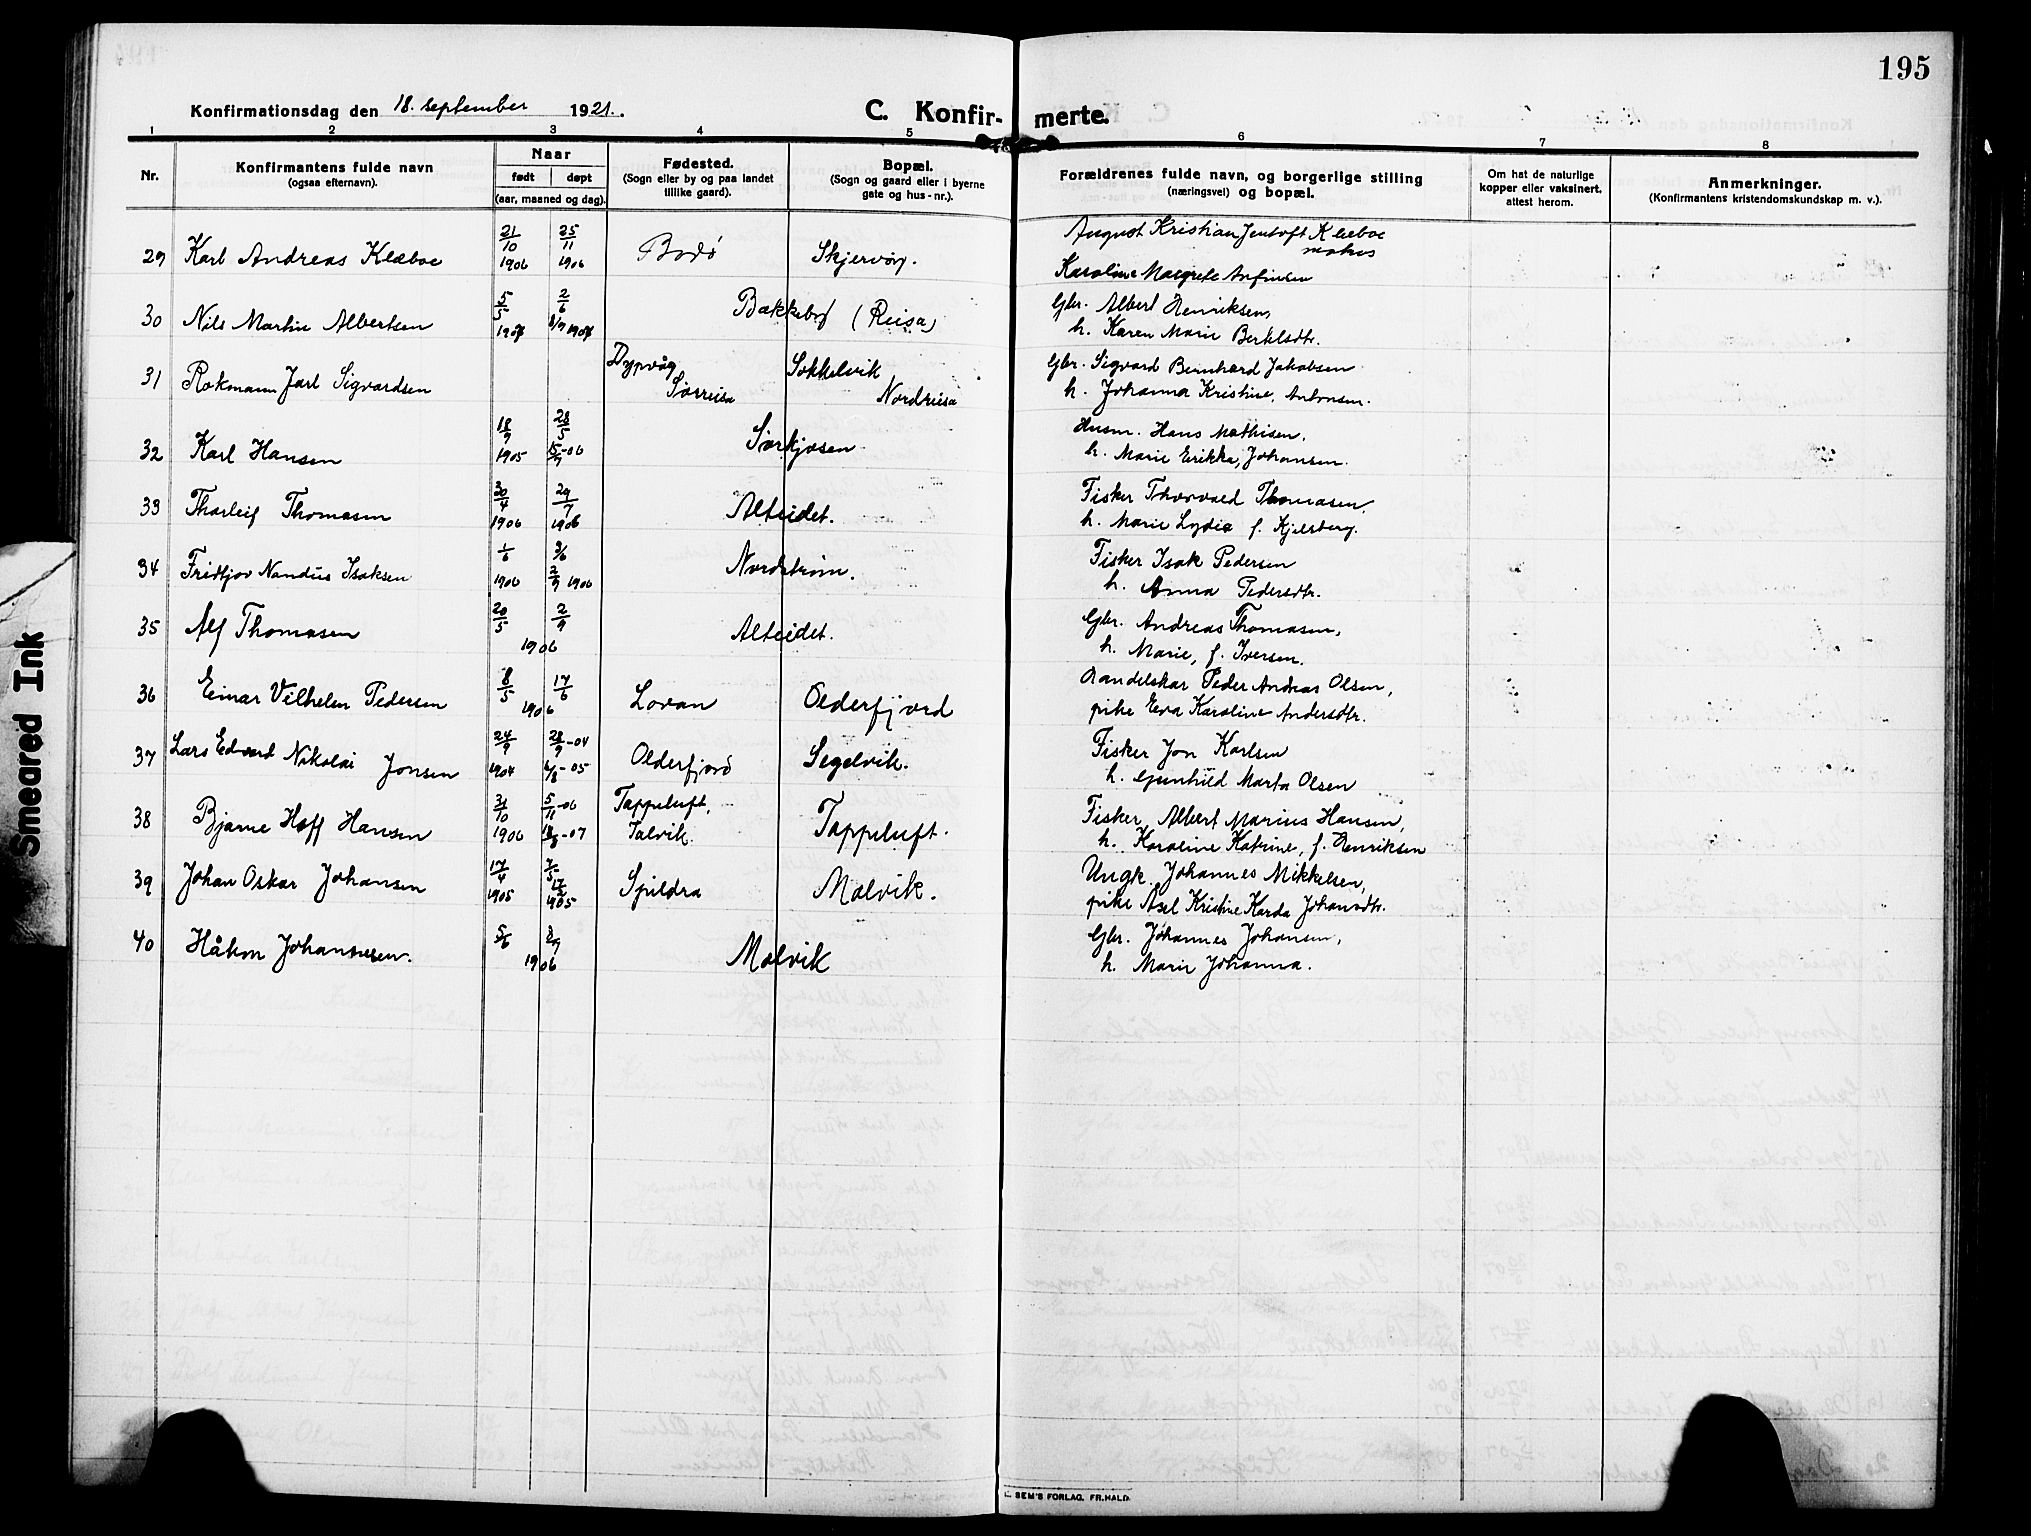 195
Konfirmationsdag den 18. september 1921.
C. Konfir- merte.
1 2 3 4 5 6 7 8
Nr.
Konfirmantens fulde navn
(ogsaa efternavn).
Naar
født døpt
(aar, maaned og dag).
Fødested.
(Sogn eller by og paa landet
tillike gaard).
Bopæl.
(Sogn og gaard eller i byerne
gate og hus-nr.).
Forældrenes fulde navn, og borgerlige stilling
(næringsvei) og bopæl.
Om hat de naturlige
kopper eller vaksinert.
attest herom.
Anmerkninger.
(Konfirmantens kristendomskundskap m. v.).
29 Karl Andreas Klæboe 21/10 1906 25/11 1906 Bodø Skjervøy. August Kristian Jentoft Klæboe
Karoline Margrete Arfinsen
30 Nils Martin Albertsen 5/5 2/6 Bakkeby (Reisa) Gbr. Albert Henriksen,
h. Karen Marie Bertelsdtr.
31 Rokmann Jarl Sigvardsen Dypvåg Sørreisa Sokkelvik Nordreisa Gbr. Sigvard Bernhard Jakobsen
h. Johanna Kristine, Antonsen.
32 Karl Hansen 18/9 1905 28/5 15/9-06 Sørkjosen Husm. Hans Mathisen,
h. Marie Erikka, Johansen.
33 Thorleif Thomasen 30/4 1906 29/7 1906 Alteidet. Fisker Thorvald Thomasen,
h. Marie Lydia f. Kjelsberg.
34 Fridtjov Nandus Isaksen 1/6 1906 3/6 2/9 1906 Nordstrøm. Fisker Isak Pedersen
h. Anna Pedersdtr.
35 Alf Thomasen 20/5 2/9 1906 Alteidet. Gbr. Andreas Thomasen,
h. Marie, f. Iversen.
36 Einar Vilhelm Pedersen 8/5 17/6 1906 Lovan Olderfjord Handelskar Peder Andreas Olsen,
pike Eva Karoline Andersdtr.
37 Lars Edvard Nikolai Jonsen 24/9 1904 28/9-04 6/8-05 Olderfjord Segelvik. Fisker Jon Karlsen
h. Gunhild Marta Olsen
38 Bjarne Hoff Hansen 31/10 1906 5/11-06 18/8-07 Tappeluft, Talvik. Tappeluft. Fisker Albert Marius Hansen,
h. Karoline Katrine, f. Henriksen
39 Johan Oskar Johansen 17/4 1905 7/5 1905 Spildra Malvik. Ungk. Johannes Mikkelsen,
pike Asel Kristine Karda Johansdtr.
40 Håkon Johannesen. 5/6 2/9 1906 Malvik Gbr. Johannes Johansen,
h. Marie Johanna.
SEM'S FORLAG, FR.HALD.
Smeared Ink